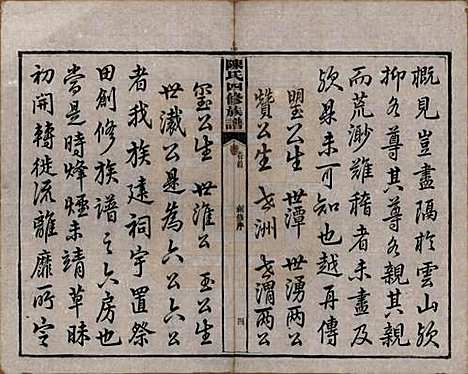 概見豈盡隔於雲山歟
抑各尊其尊各親其親
而荒渺難稽者未盡及
歟是未可知也越再傳
瞾公生 世潭 世湧兩公
贊公生 世洲 世渭兩公
陳氏四修族譜
卷首
四
璽公生 世淮公 玉公生
世瀻公是為六公六公
者我族建祠宇置祭
田創修族譜之六房也
當是時烽煙未靖草昧
初開轉徙流離靡所定